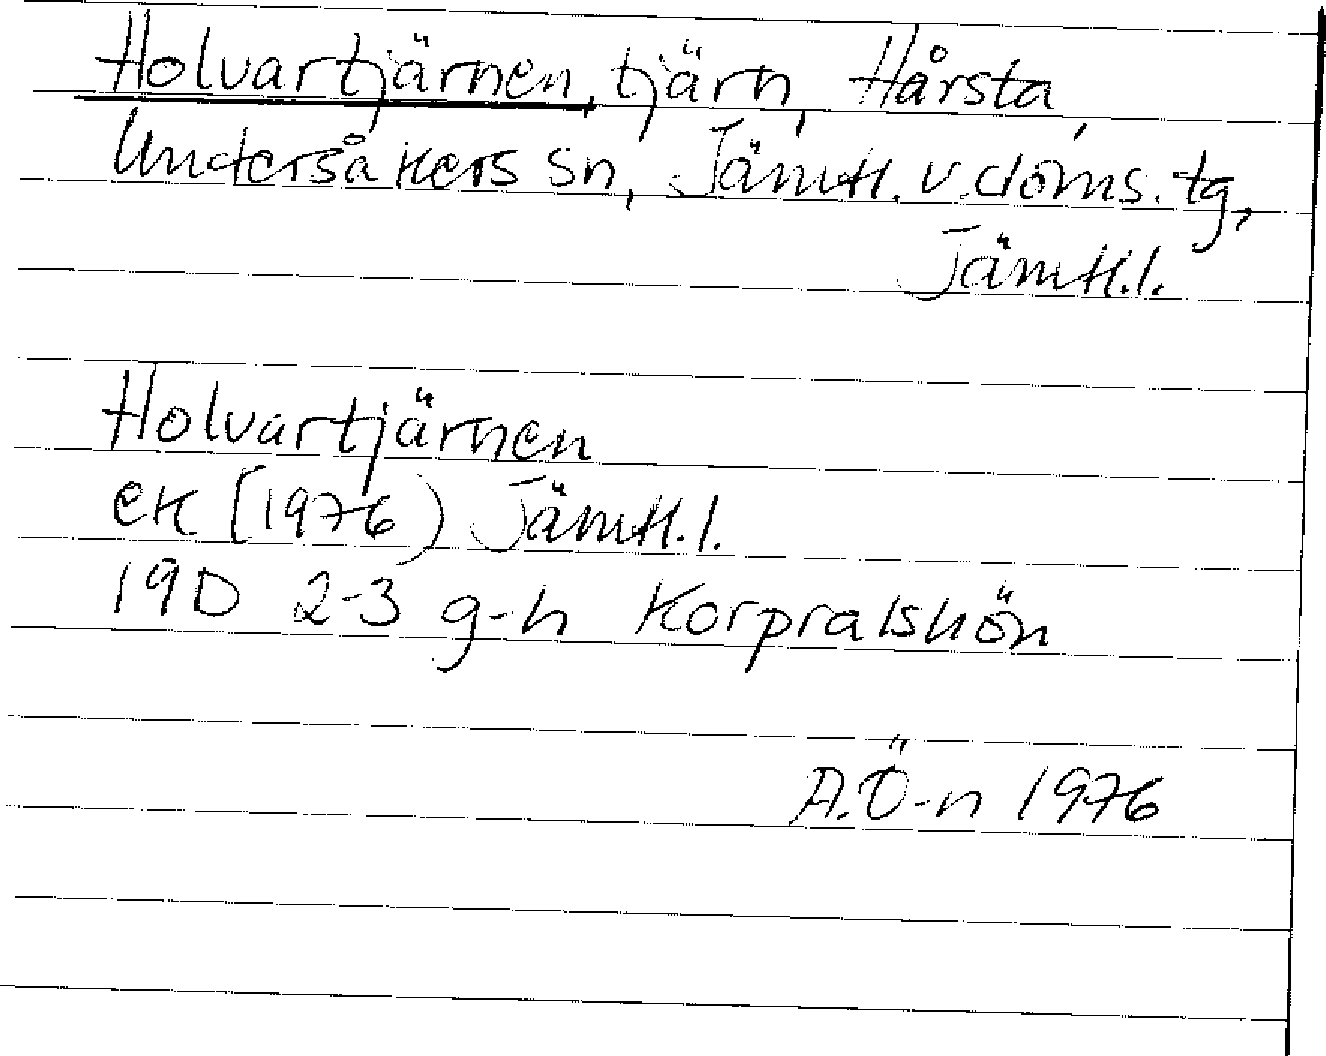 Holvartjärnen, tjärn, Hårsta,
Undersåkers sn, Jämtl. v. doms. tg,
Jämtl. l.
Holvartjärnen
ek (1976) Jämtl. l.
19D 2-3 g-h Korpralshön
A. Ö-n 1976